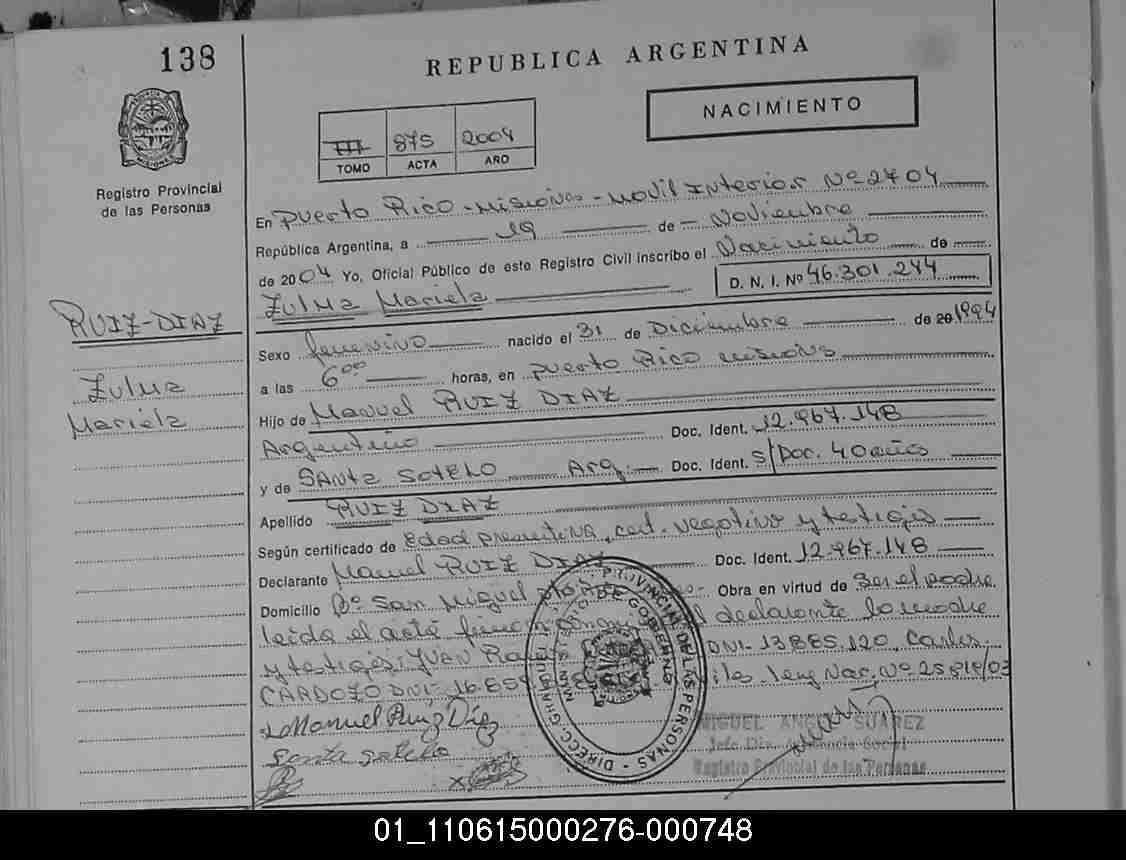 138
REPUBLICA ARGENTINA
NACIMIENTO
III 875 2004
TOMO ACTA AÑO
Registro Provincial
de las Personas
En Puerto Rico - Misiones - Movil Interior Nº 2704
República Argentina, a 19 de Noviembre
de 2004 Yo, Oficial Público de este Registro Civil inscribo el Nacimiento de
Zulma Mariela
D. N. I. Nº 46.301.244
RUIZ-DIAZ
Zulma
Mariela
Sexo femenino nacido el 31 de Diciembre de 1994
a las 6 00 horas, en Puerto Rico Misiones
Hijo de Manuel RUIZ DIAZ
Argentino Doc. Ident. 12.967.148
y de SANTA SOTELO Arg. Doc. Ident. S/Doc. 40 años
Apellido RUIZ DIAZ
Según certificado de Edad presuntiva, cert. negativo y testigos
Declarante Manuel RUIZ DIAZ Doc. Ident. 12.967.148
Domicilio Bº San Miguel Obra en virtud de Ser el padre
leída el acta declarante la madre
y testigos: DNI. 13.885.120, Carlos
CARDOZO DNI. 16.859 ley Nac. Nº 25819/03
Manuel Ruiz Diaz
Santa Sotelo
DIRECC. GRAL. DE LAS PERSONAS
PROVINCIA
DE GOBIERNO
MIGUEL ANGEL SUAREZ
Registro Provincial de las Personas
01_110615000276-000748